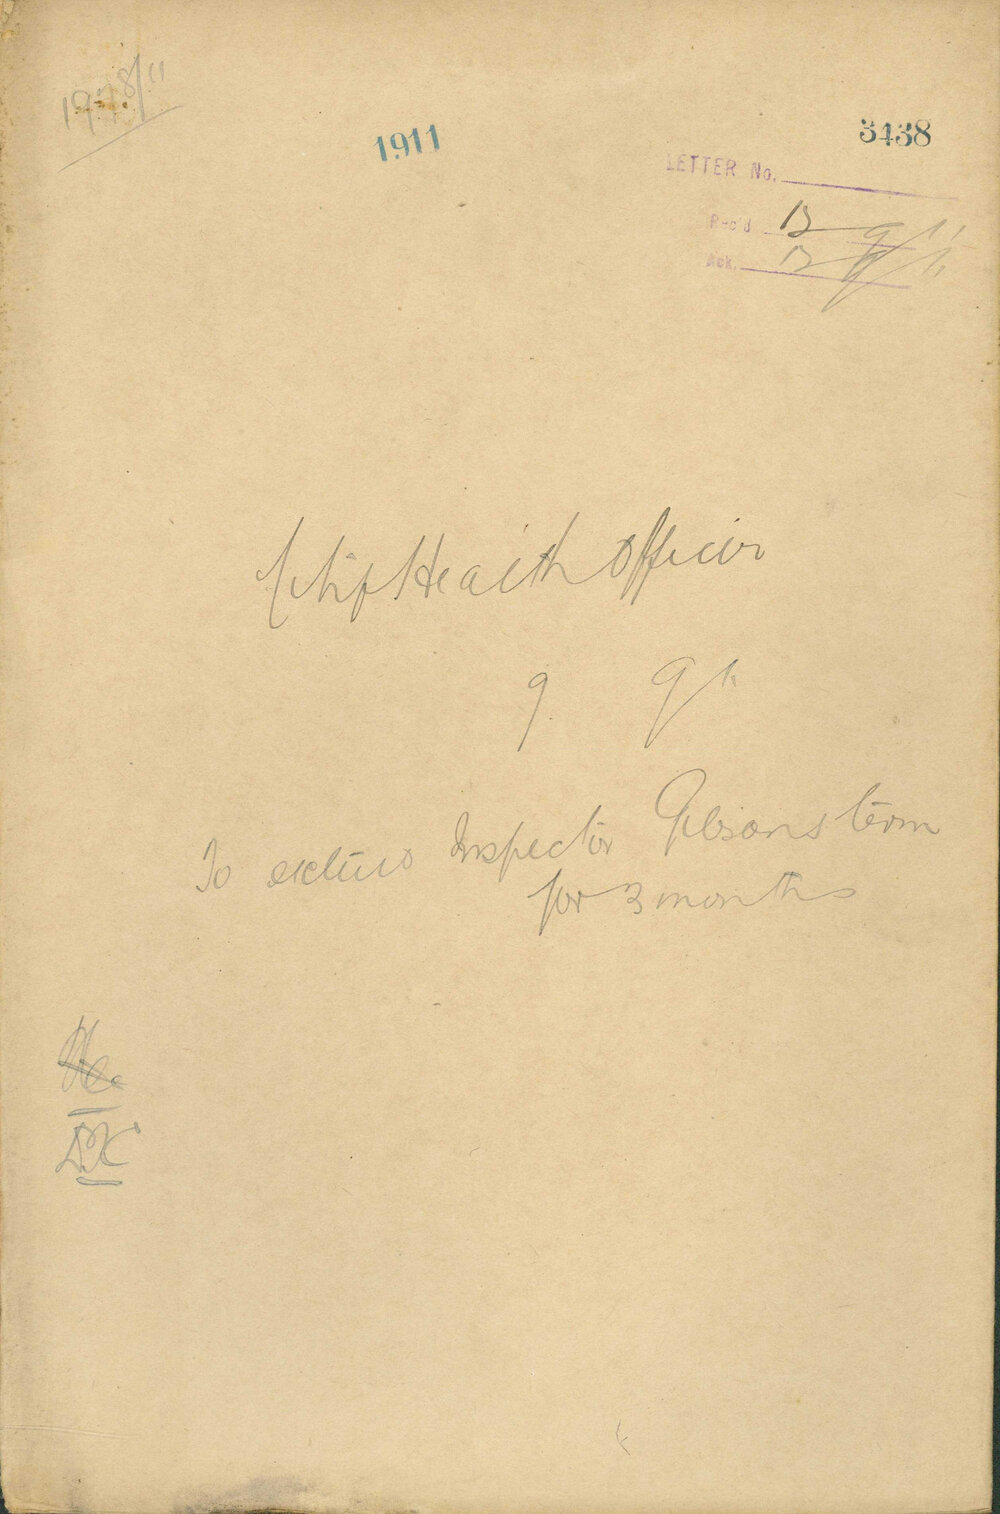 1911
3438
LETTER No.
Rec'd 13 9 11
Ack. 13 9 11
Chif Health Officer
9. 9 11
To extend Inspector Gibsons term
for 3 months